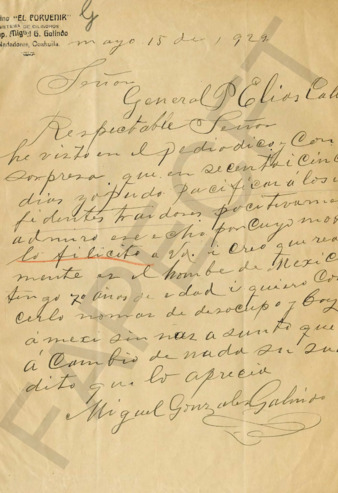 "EL PORVENIR"
G
p. Miguel G. Galindo
Coahuila.
mayo 15 de 192
Señor
General P Elias Cal
Respectable Señor
he visto en el periodico y con
sorpresa que en secenta i cinc
dias pudo pacificar á los i
fidentes traidores, pocitivame
admiro ese echo por cuyo mo
lo filicito a Vd. i creo que rea
mente es el hombre de Mexic
tengo 70 años de edad i quiero Con
cerlo nomas de desocupo y boy
á mexi sin mas asunto que
á Cambio de nada su su
dito que lo aprecia
Miguel Gonzales Galindo
FAPECFT